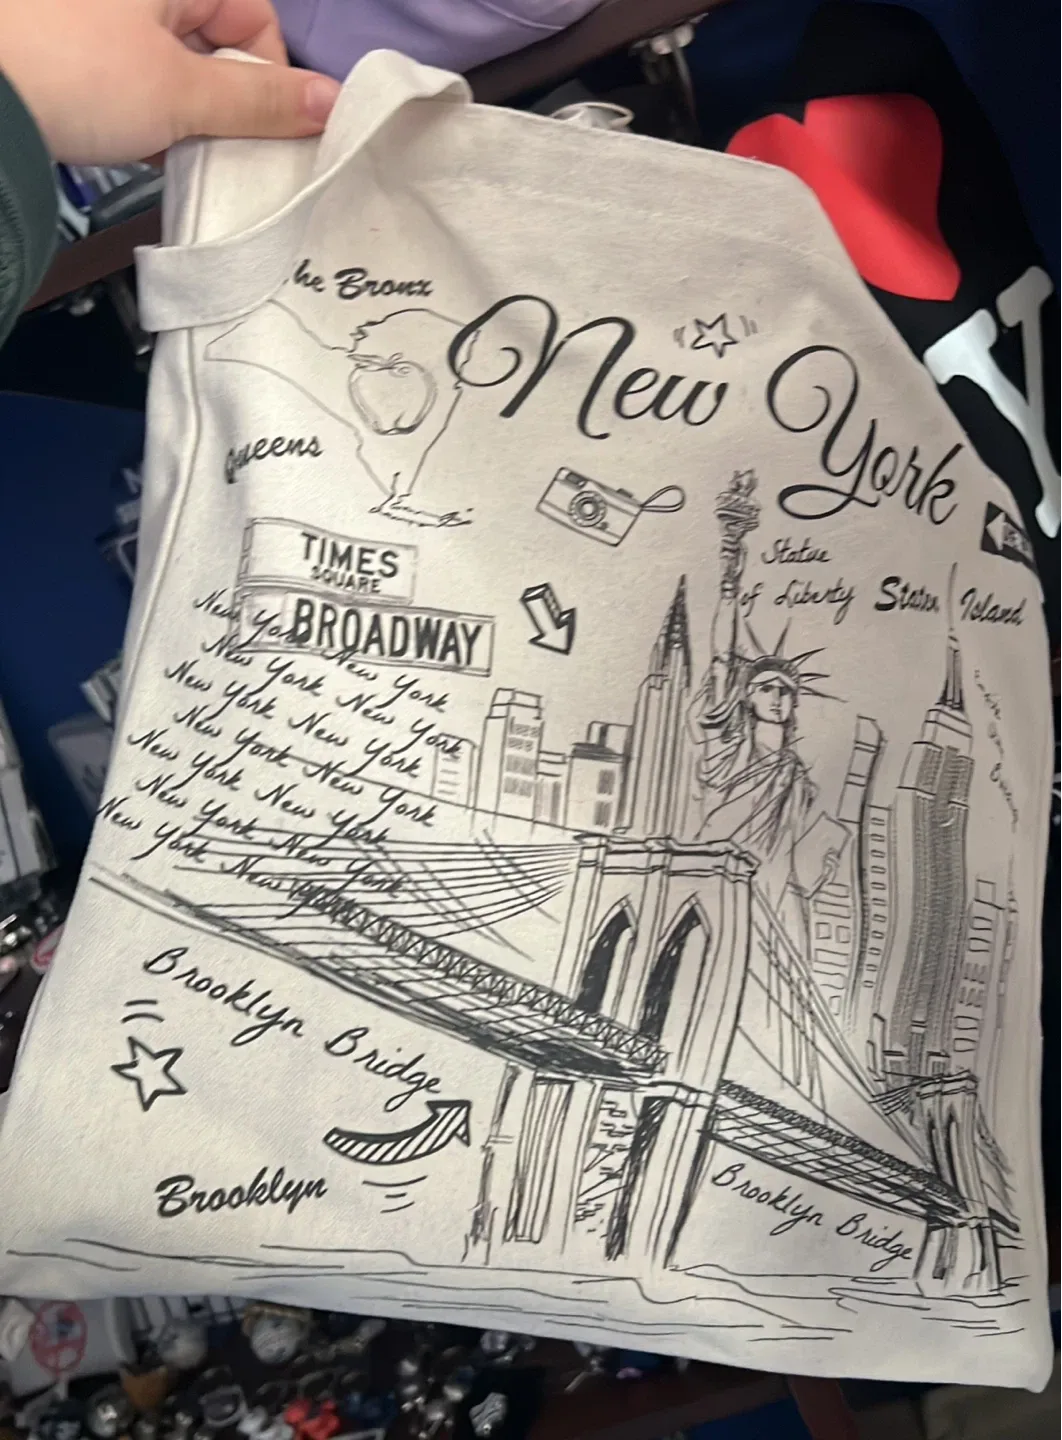 he Bronx
New York
Queens
Statue
of Liberty
Staten Island
TIMES
SQUARE
BROADWAY
New York New York
New York New York
New York New York
New York New York
New York New York
New York New York
New York New York
Brooklyn Bridge
Brooklyn
Brooklyn Bridge
Y